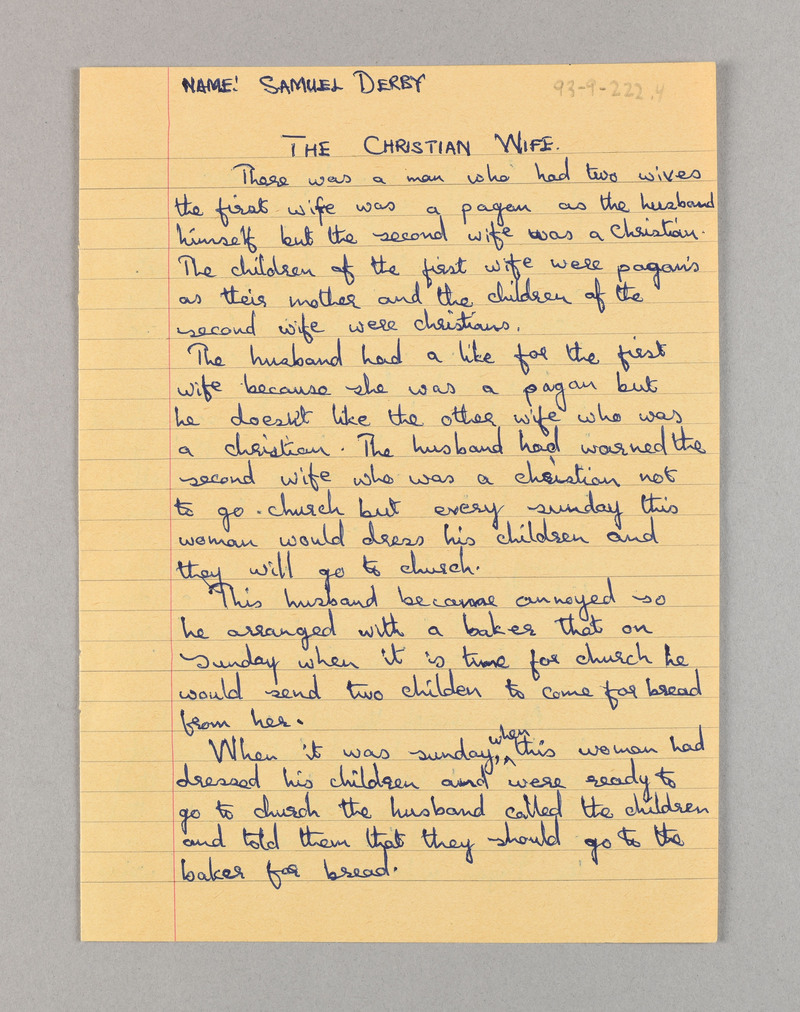 NAME: SAMUEL DERBY
93-9-222.4
THE CHRISTIAN WIFE.
There was a man who had two wives
the first wife was a pagan as the husband
himself but the second wife was a Christian.
The children of the first wife were pagan's
as their mother and the children of the
second wife were christians.
The husband had a like for the first
wife because she was a pagan but
he doesn't like the other wife who was
a christian. The husband had warned the
second wife who was a christian not
to go church but every sunday this
woman would dress his children and
they will go to church.
This husband became annoyed so
he arranged with a baker that on
Sunday when it is time for church he
would send two childen to come for bread
from her.
When it was sunday, when this woman had
dressed his children and were ready to
go to church the husband called the children
and told them that they should go to the
baker for bread.